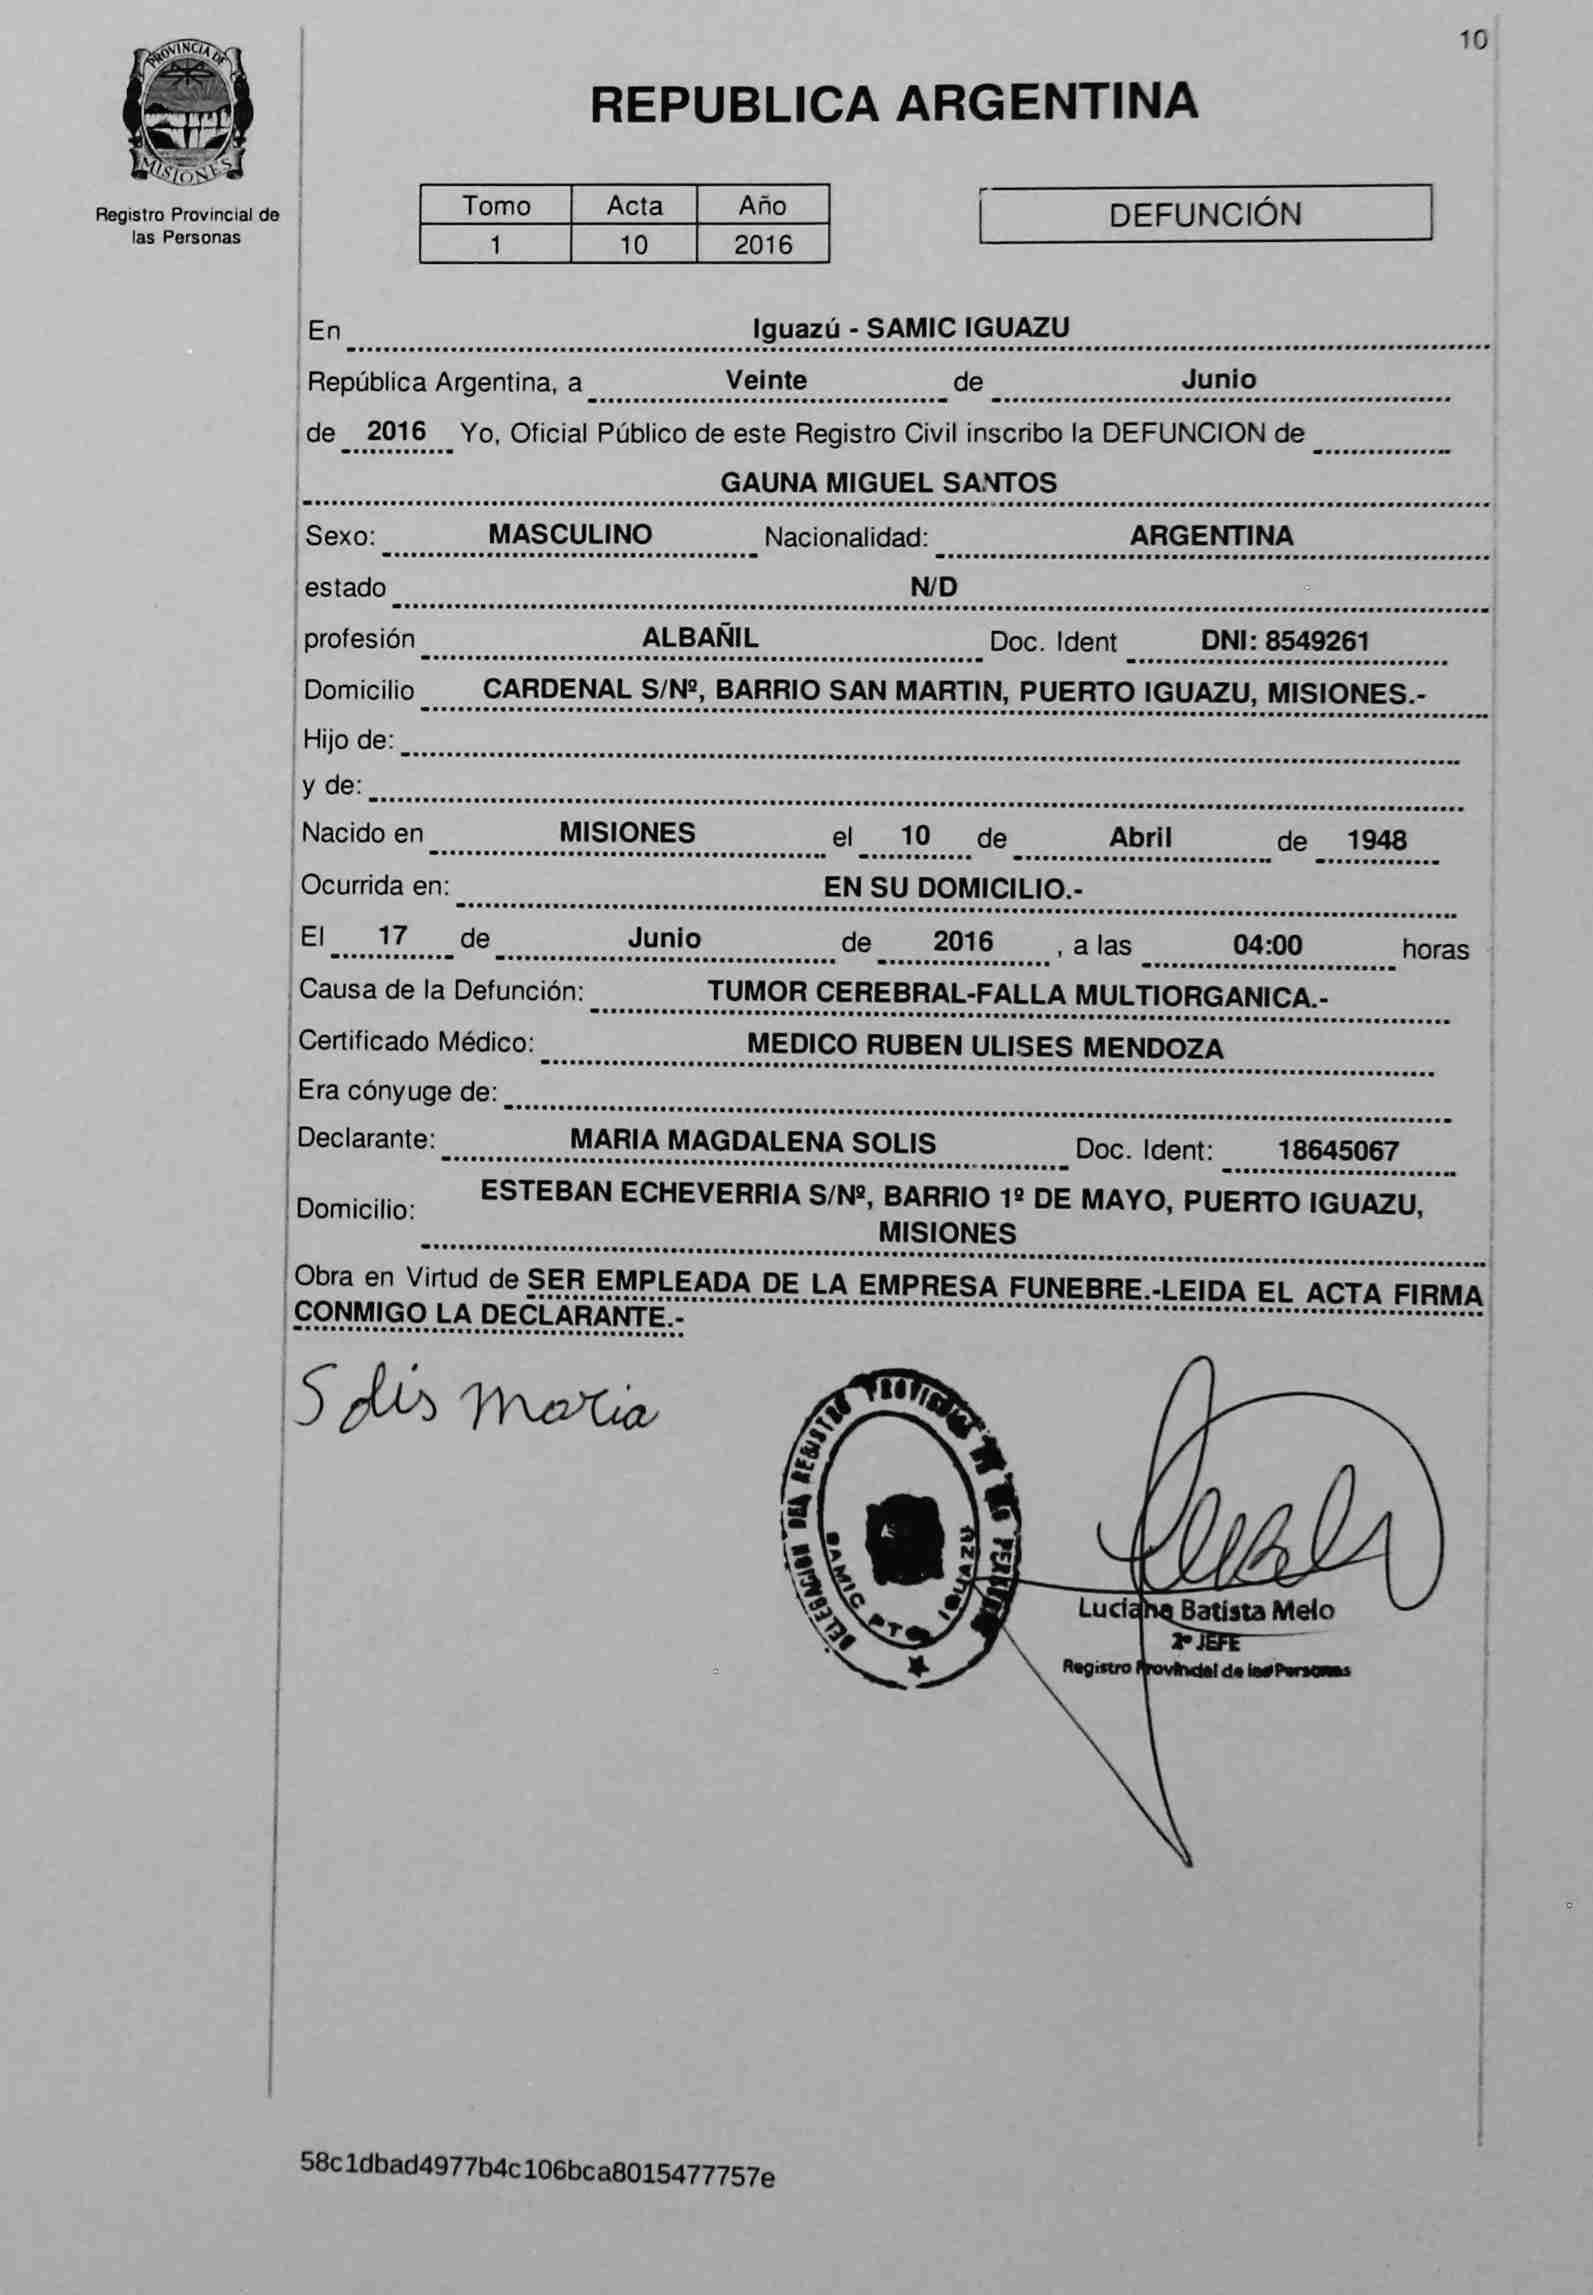 10
PROVINCIA DE
MISIONES
Registro Provincial de
las Personas
REPUBLICA ARGENTINA
Tomo Acta Año
1 10 2016
DEFUNCIÓN
En Iguazú - SAMIC IGUAZU
República Argentina, a Veinte de Junio
de 2016 Yo, Oficial Público de este Registro Civil inscribo la DEFUNCION de
GAUNA MIGUEL SANTOS
Sexo: MASCULINO Nacionalidad: ARGENTINA
estado N/D
profesión ALBAÑIL Doc. Ident DNI: 8549261
Domicilio CARDENAL S/Nº, BARRIO SAN MARTIN, PUERTO IGUAZU, MISIONES.-
Hijo de:
y de:
Nacido en MISIONES el 10 de Abril de 1948
Ocurrida en: EN SU DOMICILIO.-
El 17 de Junio de 2016 , a las 04:00 horas
Causa de la Defunción: TUMOR CEREBRAL-FALLA MULTIORGANICA.-
Certificado Médico: MEDICO RUBEN ULISES MENDOZA
Era cónyuge de:
Declarante: MARIA MAGDALENA SOLIS Doc. Ident: 18645067
Domicilio: ESTEBAN ECHEVERRIA S/Nº, BARRIO 1º DE MAYO, PUERTO IGUAZU,
MISIONES
Obra en Virtud de SER EMPLEADA DE LA EMPRESA FUNEBRE.-LEIDA EL ACTA FIRMA
CONMIGO LA DECLARANTE.-
Solis Maria
DELEGACION DEL REGISTRO PROVINCIAL DE LAS PERSONAS
SAMIC PTO. IGUAZU
Luciana Batista Melo
2º JEFE
Registro Provincial de las Personas
58c1dbad4977b4c106bca8015477757e